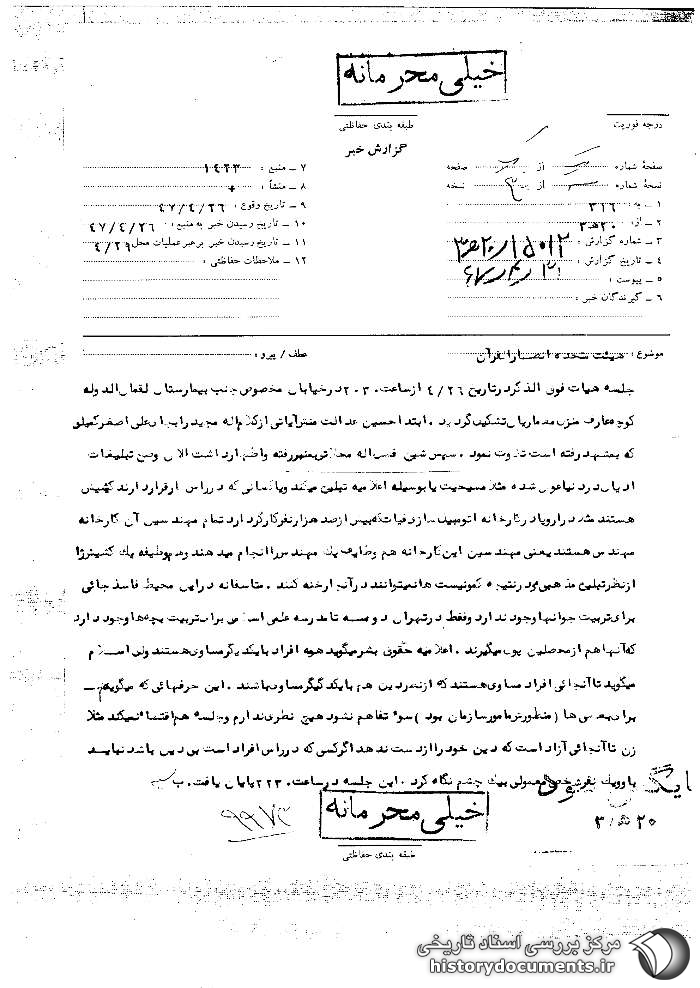 خیلی محرمانه
درجه فوریت
طبقه بندی حفاظتی
گزارش خبر
صفحهٔ شماره از صفحه
نسخهٔ شماره از نسخه
۱ ـ به : ۳۱۶
۲ ـ از: ۲۰ هـ ۳
۳ ـ شماره گزارش :
۴ ـ تاریخ گزارش :
۵ ـ پیوست :
۶ ـ گیرندگان خبر :
۷ ـ منبع : ۱۴۳۳
۸ ـ منشأ :
۹ ـ تاریخ وقوع : ۴۷/۴/۲۶
۱۰ ـ تاریخ رسیدن خبر به منبع : ۴۷/۴/۲۶
۱۱ ـ تاریخ رسیدن خبر برهبر عملیات محل : ۴/۲۹
۱۲ ـ ملاحظات حفاظتی :
موضوع : هیئت متحده انصارالقرآن
عطف / پیرو :
جلسه هیات فوق الذکر در تاریخ ۴/۲۶ از ساعت ۲۰۳۰ در خیابان مخصوص جنب بیمارستان لقمان الدوله
کوچه عارف منزل معماریان تشکیل گردید . ابتدا حسین عدالت منش آیاتی از کلام اله مجید را بجای علی اصغر
که بمشهد رفته است تلاوت نمود . سپس شیخ قدرت اله بمنبر رفته و اظهار داشت الان وضع تبلیغات
ادیان در دنیا عوض شده مثلا مسیحیت یا بوسیله اعلامیه تبلیغ میکند و یا کسانی که در راس کار قرار دارند کشیش
هستند مثلا در اروپا در کارخانه اتومبیل سازی فیات که بیش از صد هزار نفر کارگر دارد تمام مهندسین آن کارخانه
هستند یعنی مهندسین این کارخانه هم وظایف یک مهندس را انجام میدهند و هم وظیفه یک کشیش را
از نظر تبلیغ مذهبی و در نتیجه کمونیست ها نمیتوانند در آنجا رخنه کنند . متاسفانه در این محیط فاسد جائی
برای تربیت جوانها وجود ندارد و فقط در تهران دو سه تا مدرسه علمی اسلامی برای تربیت بچه ها وجود دارد
که آنها هم از محصلین پول میگیرند . اعلامیه حقوق بشر میگوید همه افراد با یکدیگر مساوی هستند ولی اسلام
میگوید تا آنجائی افراد مساوی هستند که از نظر دین هم با یکدیگر مساوی باشند . این حرفهائی که میگویم ـ
برای بعضی ها ( منظورش مامور سازمان بود ) سوء تفاهم نشود هیچ نظری ندارم و جلسه هم اقتضا نمیکند مثلا
زن تا آنجائی آزاد است که دین خود را از دست ندهد اگر کسی که در راس افراد است بی دین باشد نباید
با و یک نفر شخص معمولی بیک چشم نگاه کرد . این جلسه در ساعت ۲۲۳۰ پایان یافت .
۲۰ هـ ۳
۹۹۷۳
خیلی محرمانه
طبقه بندی حفاظتی
مرکز بررسی اسناد تاریخی
historydocuments.ir